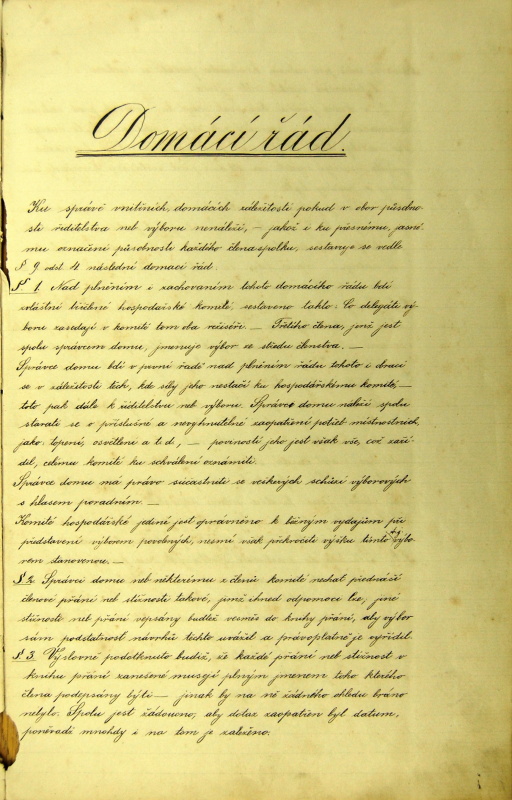 Domácí řád.
Ku správě vnitřních, domácích záležitostí pokud v obor působno-
sti ředitelstva neb výboru nenáleží, – jakož i ku přesnému, jasné-
mu označení působnosti každého člena spolku, sestavuje se vedle
§ 9. odst. 4. následní domácí řád.
§ 1. Nad plněním i zachováním tohoto domácího řádu bdí
zvláštní tříčlené hospodářské komité, sestaveno takto: Co delegáti vý-
boru zasedají v komité tom oba režiséři. – Třetího člena, jenž jest
spolu správcem domu, jmenuje výbor ze středu členstva. –
Správce domu bdí v první řadě nad plněním řádu tohoto i obrací
se v záležitosti těch, kde síly jeho nestačí ku hospodářskému komité, –
toto pak dále k ředitelstvu neb výboru. Správce domu náleží spolu
starati se o příslušné a nevyhnutelné zaopatření potřeb místnostních,
jako: topení, osvětlení a t. d., – povinností jeho jest však vše, což zaří-
dil, celému komité ku schválení oznámiti.
Správce domu má právo súčastniti se veškerých schůzí výborových
s hlasem poradním. –
Komité hospodářské jedině jest oprávněno k běžným vydajům při
představení výborem povolených, nesmí však překročiti výšku tímto výbo-
rem stanovenou. –
§ 2. Správci domu neb některému z členů komité nechať přednáší
členové přání neb stížnosti takové, jimž ihned odpomoci lze, jiné
stížnosti neb přání vepsány buďtež vesměs do knihy přání, aby výbor
sám podstatnost návrhů těchto uvážil a právoplatně je vyřídil.
§ 3. Výslovně podotknuto budiž, že každé přání neb stížnost v
knihu přání zanešené musejí plným jmenem toho kterého
člena podepsány býti – jinak by na ně žádného ohledu bráno
nebylo. Spolu jest žádoucno, aby dotaz zaopatřen byl datum,
poněvadž mnohdy i na tom je záleženo.